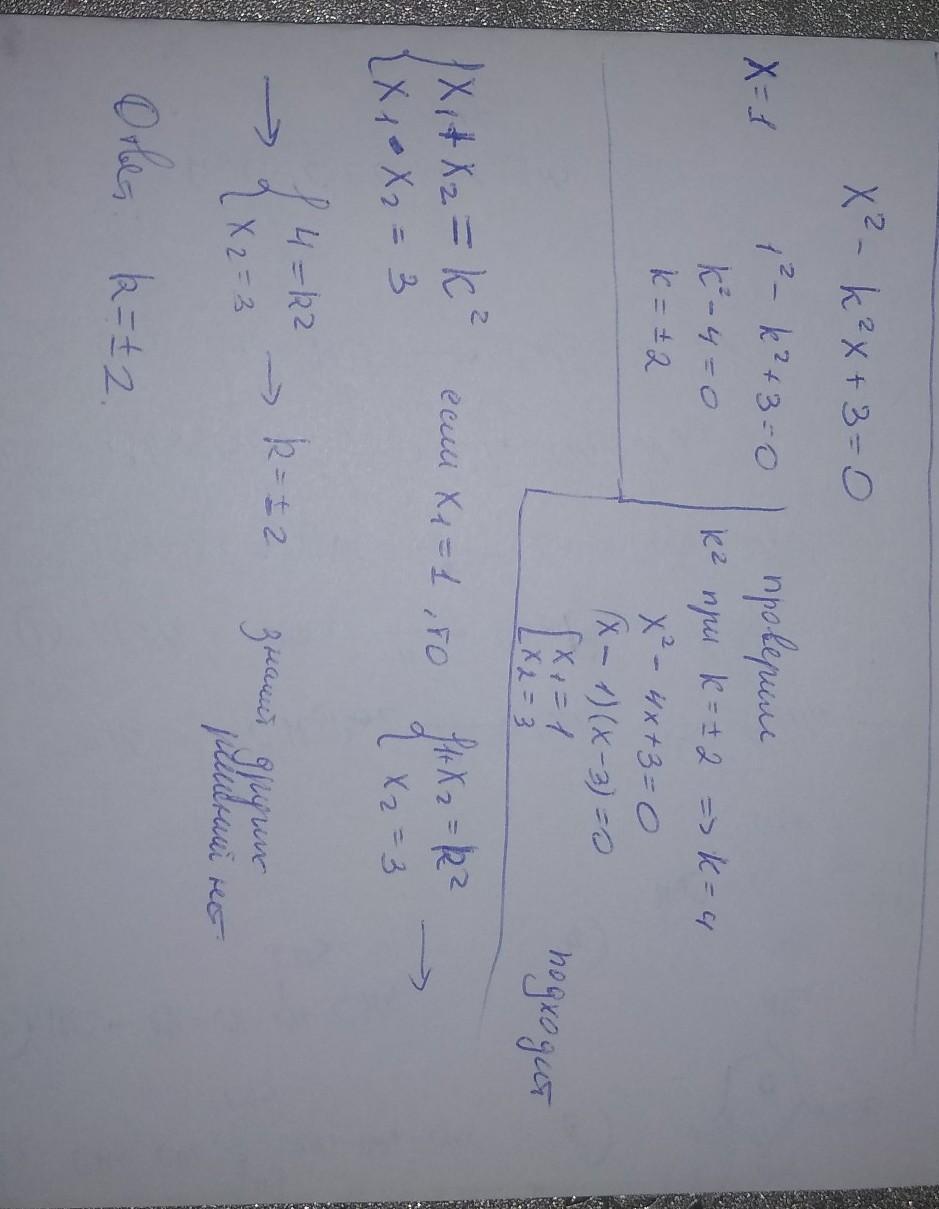 x² - k²x + 3 = 0
x = 1
1² - k² + 3 = 0
k² - 4 = 0
k = ± 2
проверим
k² при k = ± 2 => k = 4
x² - 4x + 3 = 0
(x - 1)(x - 3) = 0
[ x₁ = 1
x₂ = 3
подходит
{ x₁ + x₂ = k²
x₁ • x₂ = 3
если x₁ = 1, то
{ 1 + x₂ = k²
x₂ = 3
→
→ { 4 = k²
x₂ = 3
→ k = ± 2
значит других
решений нет
Ответ: k = ± 2.